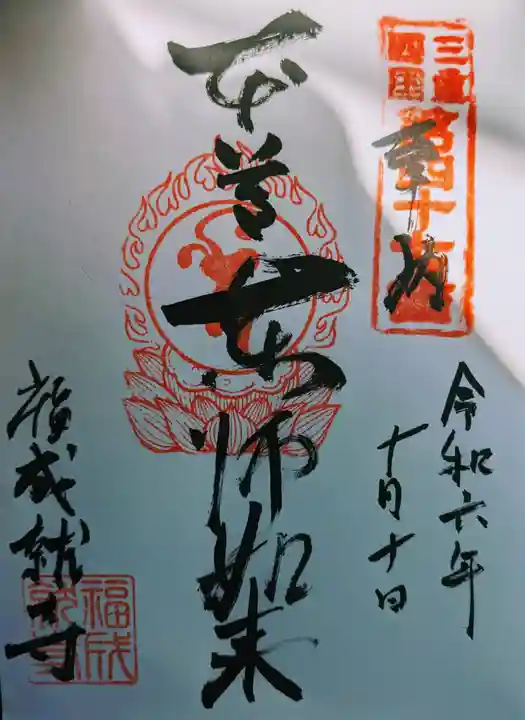 三重
四国
第四十七番
奉拝
令和六年
十月十日
本尊薬師如来
福成就寺
福成
就寺